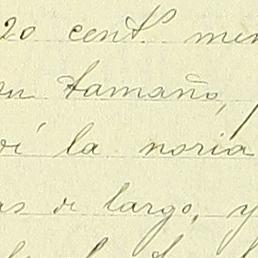 20 cent.s men
su tamaño,
la noria
as de largo, y